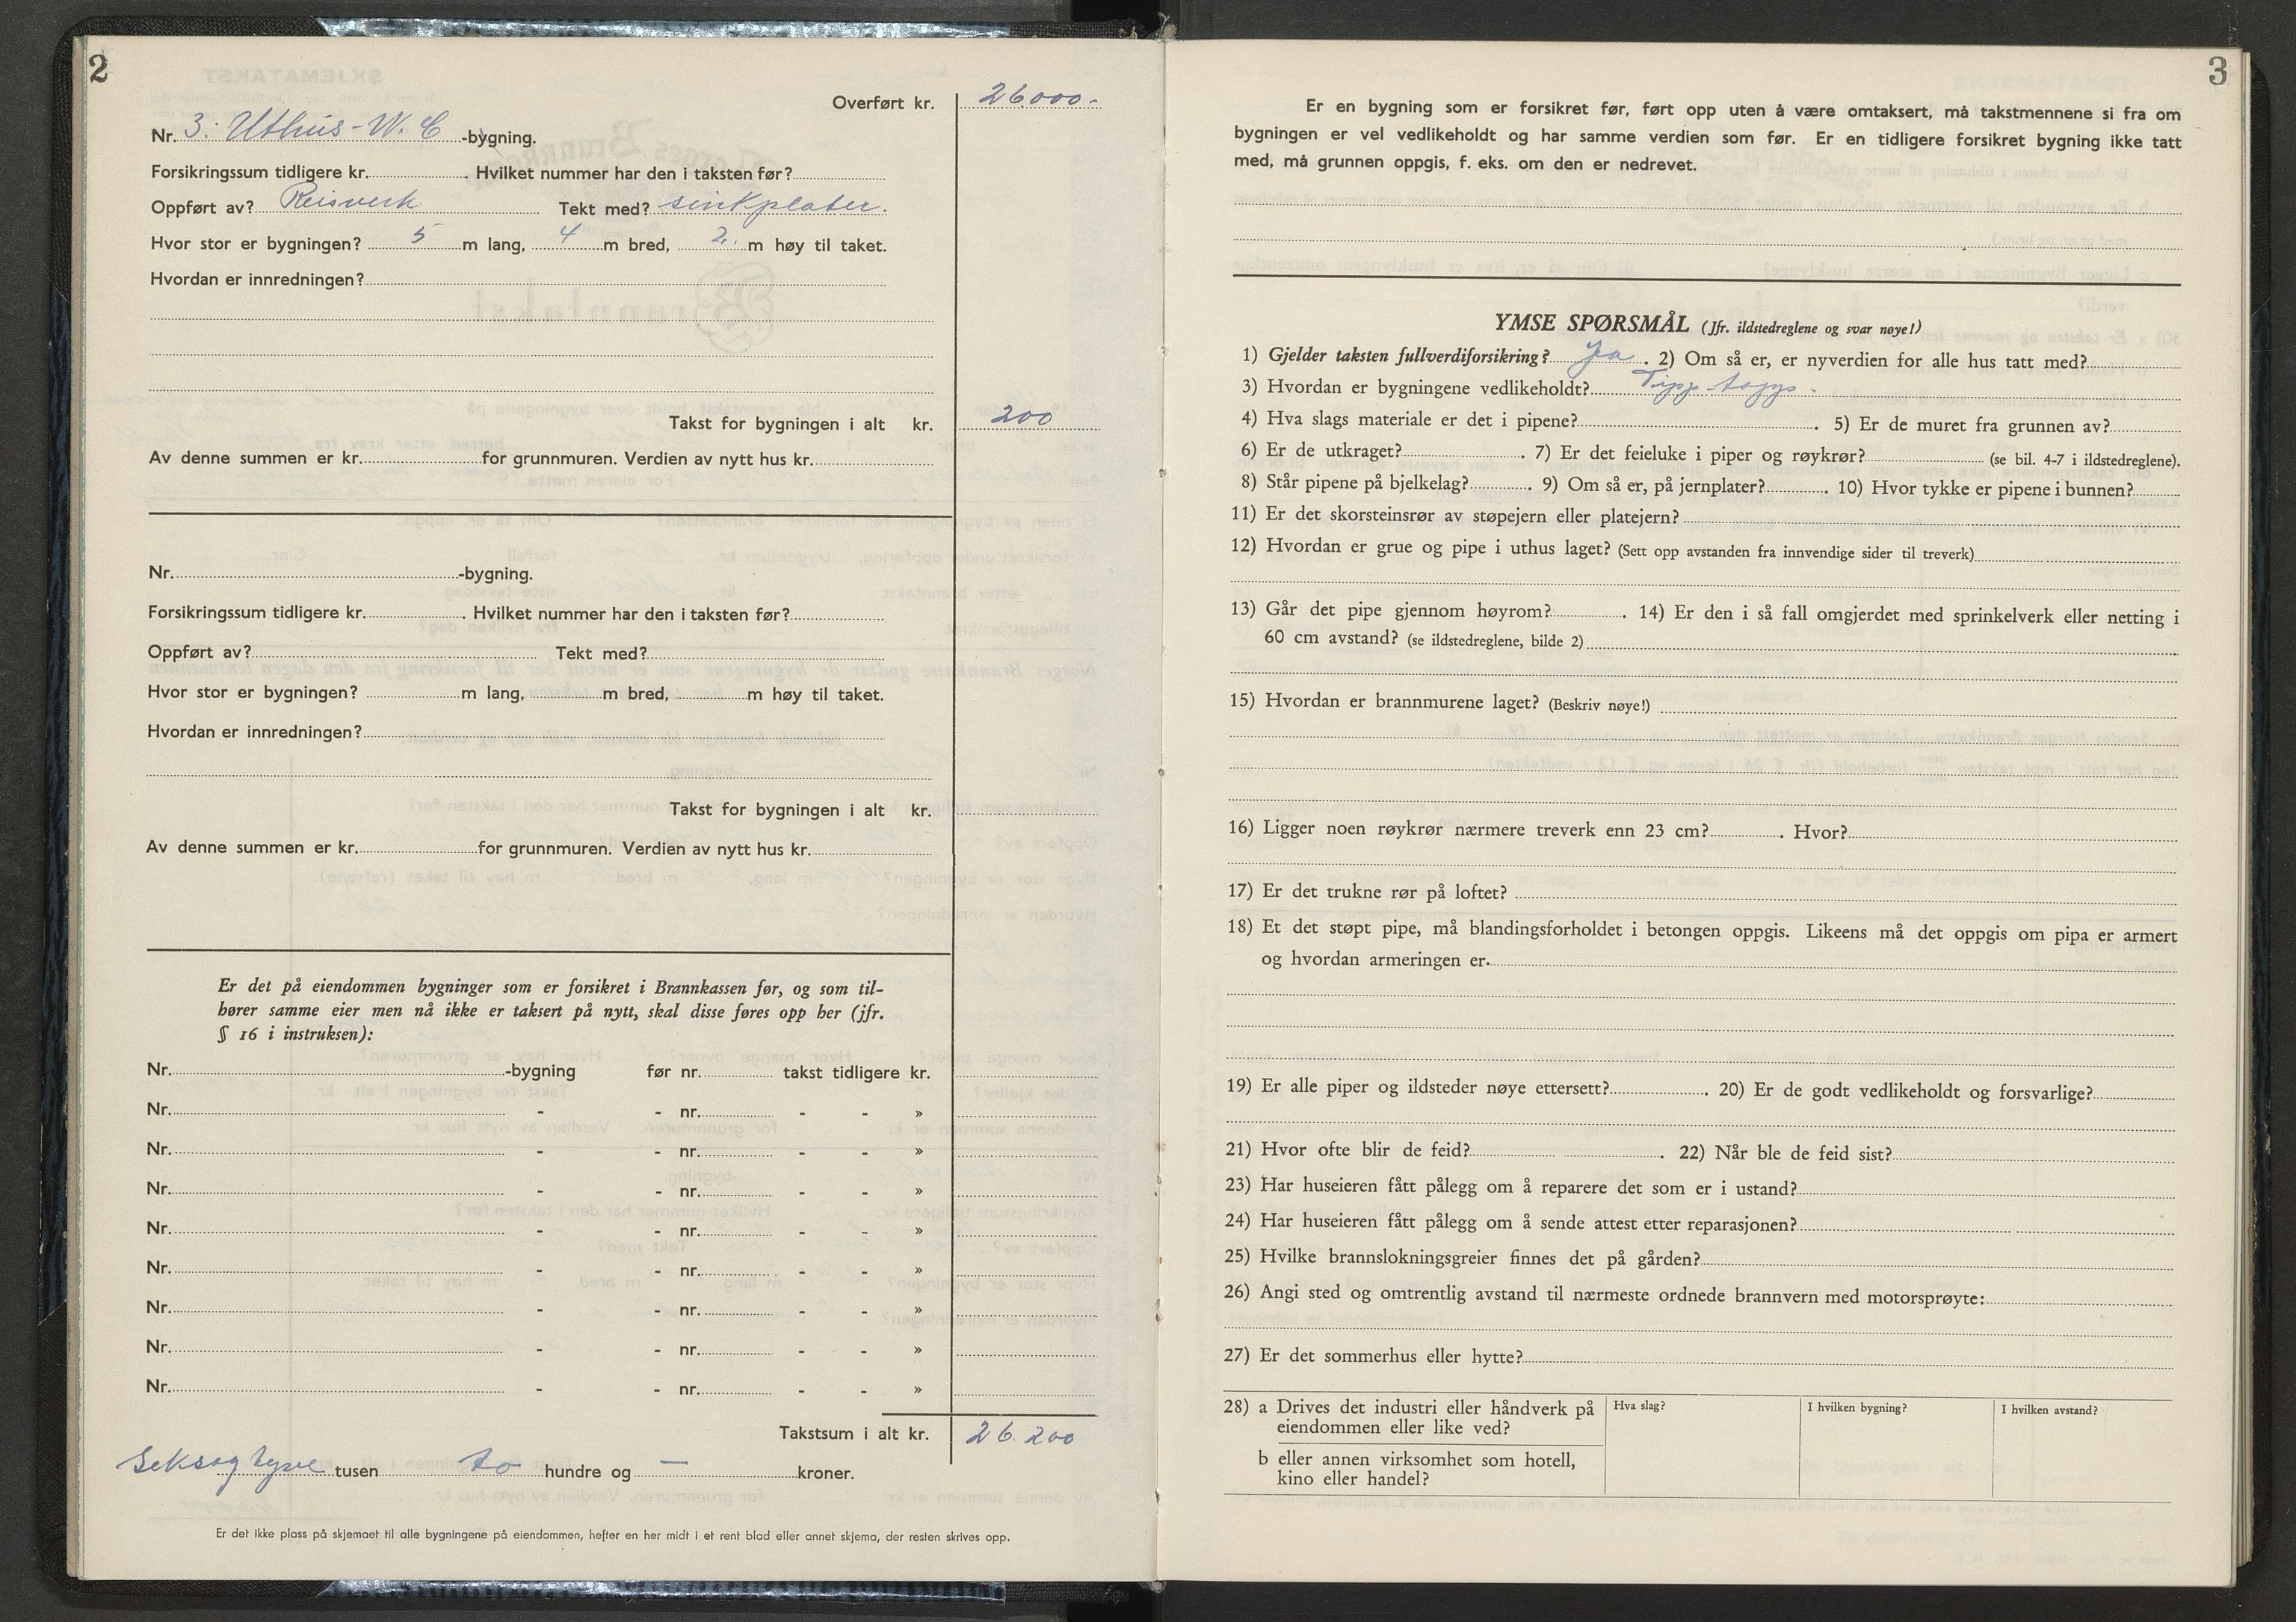 2
Overført kr. 26000.-
Nr. 3. Uthus-W.C -bygning.
Forsikringssum tidligere kr. . Hvilket nummer har den i taksten før?
Oppført av? Reisverk Tekt med? sinkplater.
Hvor stor er bygningen? 5 m lang, 4 m bred, 2. m høy til taket.
Hvordan er innredningen?
Takst for bygningen i alt kr. 200
Av denne summen er kr. for grunnmuren. Verdien av nytt hus kr.
Nr. -bygning.
Forsikringssum tidligere kr. . Hvilket nummer har den i taksten før?
Oppført av? Tekt med?
Hvor stor er bygningen? m lang, m bred, m høy til taket.
Hvordan er innredningen?
Takst for bygningen i alt kr.
Av denne summen er kr. for grunnmuren. Verdien av nytt hus kr.
Er det på eiendommen bygninger som er forsikret i Brannkassen før, og som til-
hører samme eier men nå ikke er taksert på nytt, skal disse føres opp her (jfr.
§ 16 i instruksen):
Nr. -bygning før nr. takst tidligere kr.
Nr. - - nr. - - »
Nr. - - nr. - - »
Nr. - - nr. - - »
Nr. - - nr. - - »
Nr. - - nr. - - »
Nr. - - nr. - - »
Nr. - - nr. - - »
Nr. - - nr. - - »
Takstsum i alt kr. 26.200
Seksogtyve tusen to hundre og — kroner.
Er det ikke plass på skjemaet til alle bygningene på eiendommen, hefter en her midt i et rent blad eller annet skjema, der resten skrives opp.
3
Er en bygning som er forsikret før, ført opp uten å være omtaksert, må takstmennene si fra om
bygningen er vel vedlikeholdt og har samme verdien som før. Er en tidligere forsikret bygning ikke tatt
med, må grunnen oppgis, f. eks. om den er nedrevet.
YMSE SPØRSMÅL (Jfr. ildstedreglene og svar nøye!)
1) Gjelder taksten fullverdiforsikring? Ja . 2) Om så er, er nyverdien for alle hus tatt med?
3) Hvordan er bygningene vedlikeholdt? Tipp topp.
4) Hva slags materiale er det i pipene? . 5) Er de muret fra grunnen av?
6) Er de utkraget? . 7) Er det feieluke i piper og røykrør? (se bil. 4-7 i ildstedreglene).
8) Står pipene på bjelkelag? . 9) Om så er, på jernplater? . 10) Hvor tykke er pipene i bunnen?
11) Er det skorsteinsrør av støpejern eller platejern?
12) Hvordan er grue og pipe i uthus laget? (Sett opp avstanden fra innvendige sider til treverk)
13) Går det pipe gjennom høyrom? . 14) Er den i så fall omgjerdet med sprinkelverk eller netting i
60 cm avstand? (se ildstedreglene, bilde 2)
15) Hvordan er brannmurene laget? (Beskriv nøye!)
16) Ligger noen røykrør nærmere treverk enn 23 cm? . Hvor?
17) Er det trukne rør på loftet?
18) Et det støpt pipe, må blandingsforholdet i betongen oppgis. Likeens må det oppgis om pipa er armert
og hvordan armeringen er.
19) Er alle piper og ildsteder nøye ettersett? . 20) Er de godt vedlikeholdt og forsvarlige?
21) Hvor ofte blir de feid? . 22) Når ble de feid sist?
23) Har huseieren fått pålegg om å reparere det som er i ustand?
24) Har huseieren fått pålegg om å sende attest etter reparasjonen?
25) Hvilke brannslokningsgreier finnes det på gården?
26) Angi sted og omtrentlig avstand til nærmeste ordnede brannvern med motorsprøyte:
27) Er det sommerhus eller hytte?
28) a Drives det industri eller håndverk på Hva slag? I hvilken bygning? I hvilken avstand?
eiendommen eller like ved?
b eller annen virksomhet som hotell,
kino eller handel?